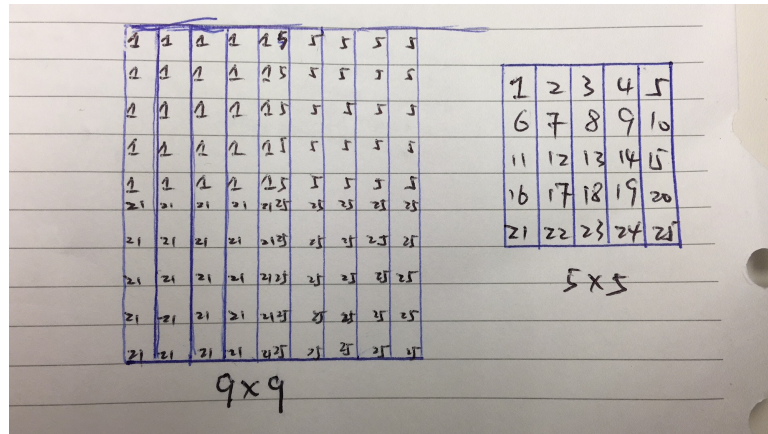 1 1 1 1 15 5 5 5 5
1 1 1 1 15 5 5 5 5
1 1 1 1 15 5 5 5 5
1 1 1 1 15 5 5 5 5
1 1 1 1 15 5 5 5 5
21 21 21 21 2125 25 25 25 25
21 21 21 21 2125 25 25 25 25
21 21 21 21 2125 25 25 25 25
21 21 21 21 2125 25 25 25 25
21 21 21 21 2125 25 25 25 25
9×9
1 2 3 4 5
6 7 8 9 10
11 12 13 14 15
16 17 18 19 20
21 22 23 24 25
5×5